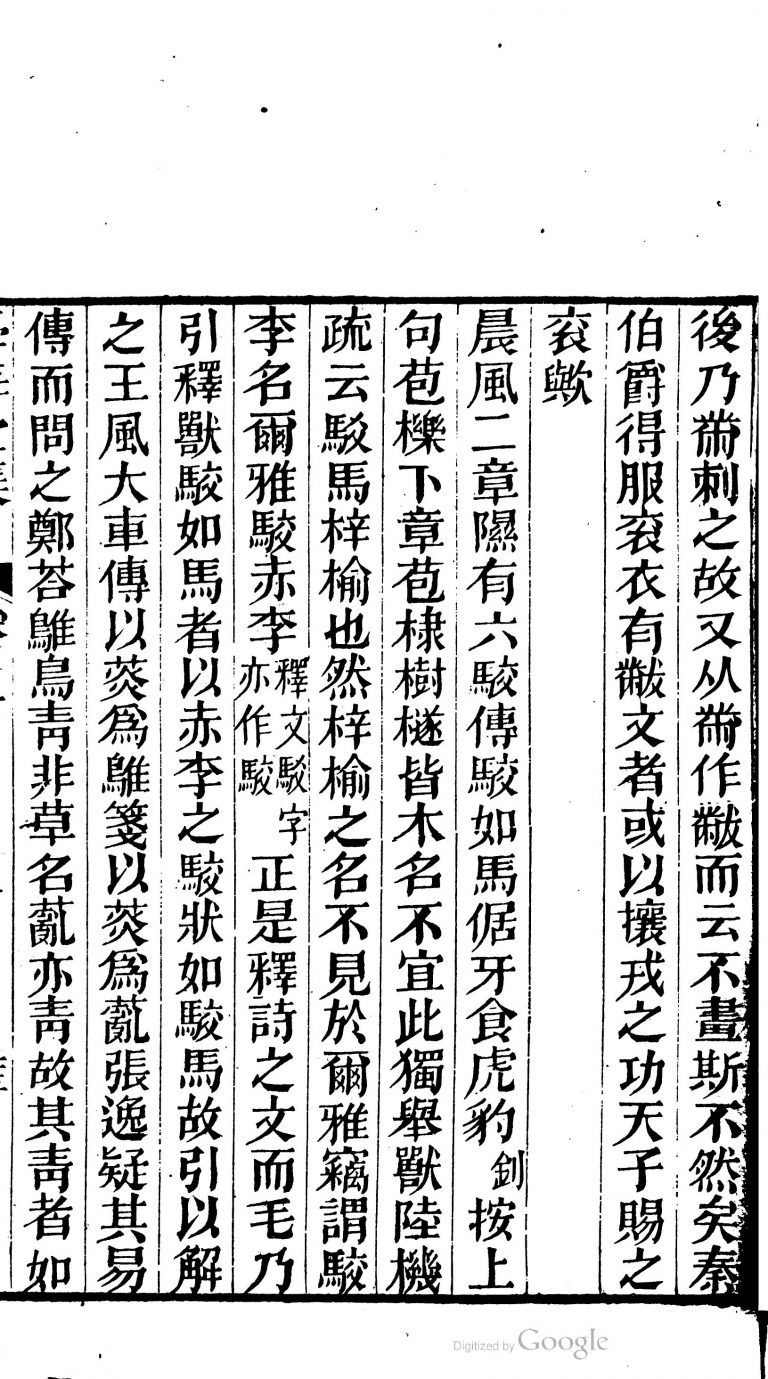 後乃黹刺之故又从黹作黻而云不畫斯不然矣秦
伯爵得服衮衣有黻文者或以攘戎之功天子賜之
衮歟
晨風二章隰有六駮傳駮如馬倨牙食虎豹釗按上
句苞櫟下章苞棣樹檖皆木名不宜此獨舉獸陸機
疏云駮馬梓榆也然梓榆之名不見於爾雅竊謂駮
李名爾雅駮赤李釋文駮字亦作駮正是釋詩之文而毛乃
引釋獸駮如馬者以赤李之駮狀如駮馬故引以解
之王風大車傳以菼為鵻箋以菼為薍張逸疑其易
傳而問之鄭荅鵻鳥青非草名薍亦青故其青者如
Digitized by Google